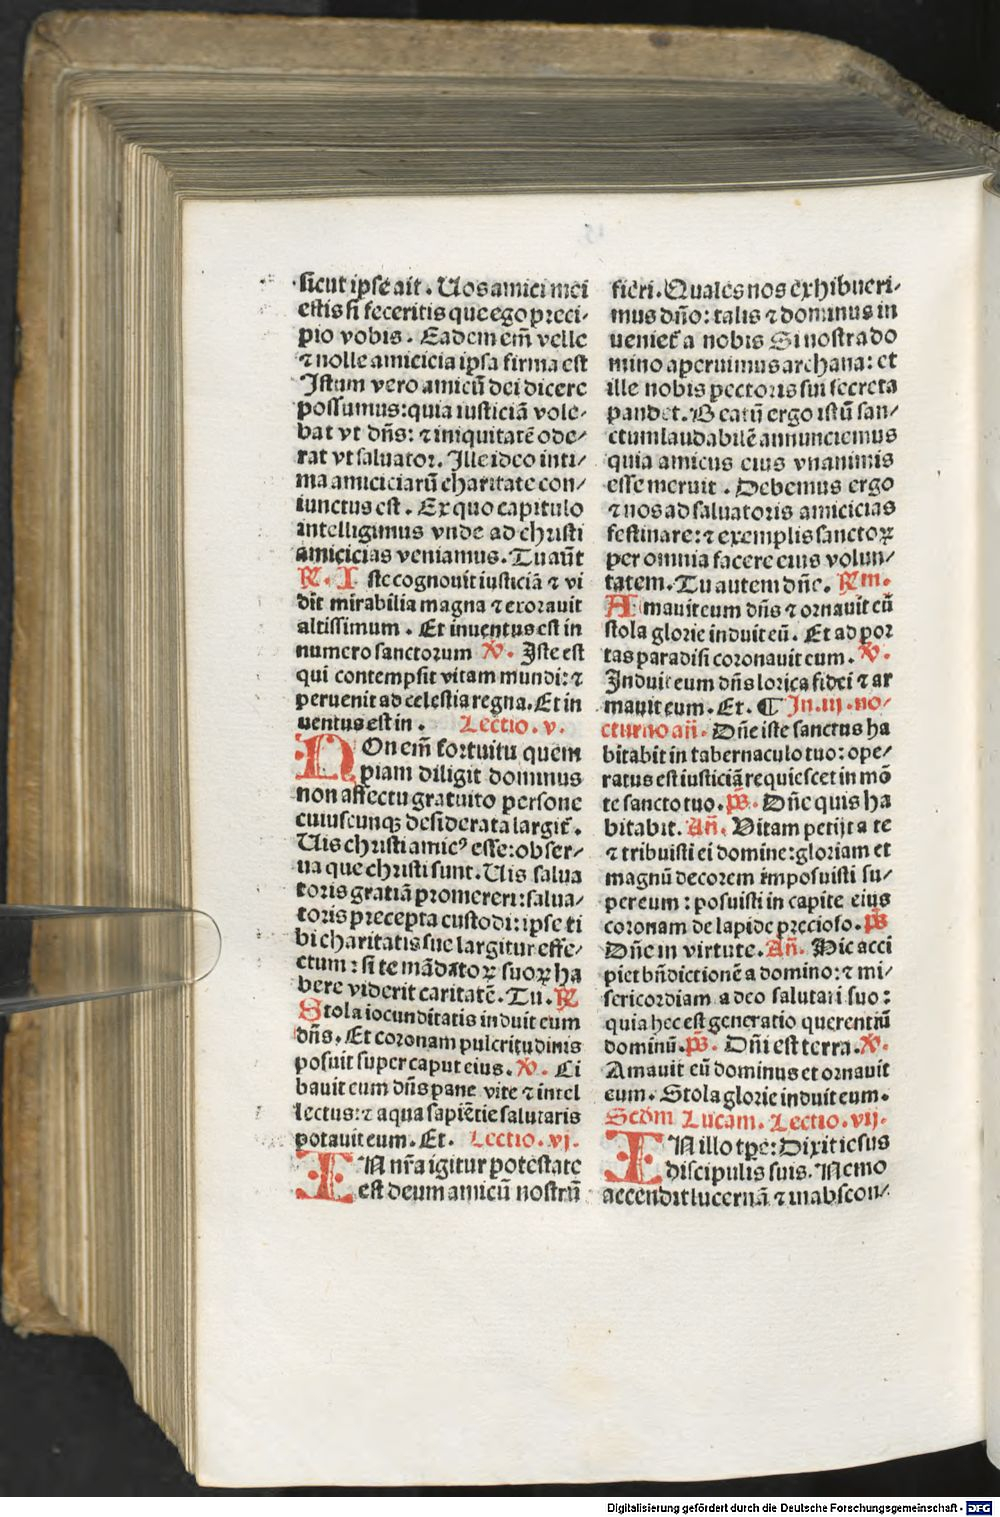 sicut ipse ait. Uos amici mei
estis si feceritis que ego preci-
pio vobis. Eadem em̄ velle
⁊ nolle amicicia ipsa firma est
Istum vero amicū dei dicere
possumus: quia iusticiā vole-
bat vt dn̄s: ⁊ iniquitatē ode/
rat vt saluator. Ille ideo inti/
ma amiciciarū charitate con/
iunctus est. Ex quo capitulo
intelligimus vnde ad christi
amicicias veniamus. Tu aūt
R̷. Iste cognouit iusticiā ⁊ vi
dit mirabilia magna ⁊ exorauit
altissimum. Et inuentus est in
numero sanctorum V̷. Iste est
qui contempsit vitam mundi: ⁊
peruenit ad celestia regna. Et in
uentus est in. Lectio. v.
NOn em̄ fortuitu quem
piam diligit dominus
non affectu gratuito persone
cuiuscunqꝫ desiderata largit̄.
Uis christi amicꝰ esse: obser/
ua que christi sunt. Uis salua
toris gratiā promereri: salua/
toris precepta custodi: ipse ti
bi charitatis sue largitur effe/
ctum: si te mādatoꝝ suoꝝ ha
bere viderit caritatē. Tu. R̷
Stola iocunditatis induit eum
dn̄s. Et coronam pulcritudinis
posuit super caput eius. V̷. Ci
bauit eum dn̄s pane vite ⁊ intel
lectus: ⁊ aqua sapiētie salutaris
potauit eum. Et. Lectio. vj.
IN nr̄a igitur potestate
est deum amicū nostrū
fieri. Quales nos exhibueri-
mus dn̄o: talis ⁊ dominus in
ueniet̄ a nobis Si nostra do
mino aperuimus archana: et
ille nobis pectoris sui secreta
pandet. Beatū ergo istū san/
ctum laudabilē annunciemus
quia amicus eius vnanimis
esse meruit. Debemus ergo
⁊ nos ad saluatoris amicicias
festinare: ⁊ exemplis sanctoꝝ
per omnia facere eius volun/
tatem. Tu autem dn̄e. R̷m.
Amauit eum dn̄s ⁊ ornauit eū
stola glorie induit eū. Et ad por
tas paradisi coronauit eum. V̷.
Induit eum dn̄s lorica fidei ⁊ ar
mauit eum. Et. ¶ In .iij. no/
cturno añ. Dn̄e iste sanctus ha
bitabit in tabernaculo tuo: ope/
ratus est iusticiā requiescet in mō
te sancto tuo. ps̄. Dn̄e quis ha
bitabit. Añ. Vitam petijt a te
⁊ tribuisti ei domine: gloriam et
magnū decorem imposuisti su/
per eum: posuisti in capite eius
coronam de lapide precioso. ps̄
Dn̄e in virtute. Añ. Hic acci
piet bn̄dictionē a domino: ⁊ mi/
sericordiam a deo salutari suo:
quia hec est generatio querentiū
dominū. ps̄. Dn̄i est terra. V̷.
Amauit eū dominus et ornauit
eum. Stola glorie induit eum.
Scdm̄ Lucam. Lectio. vij.
IN illo tp̄e: Dixit iesus
discipulis suis. Nemo
accendit lucernā ⁊ in abscon/
Digitalisierung gefördert durch die Deutsche Forschungsgemeinschaft - DFG